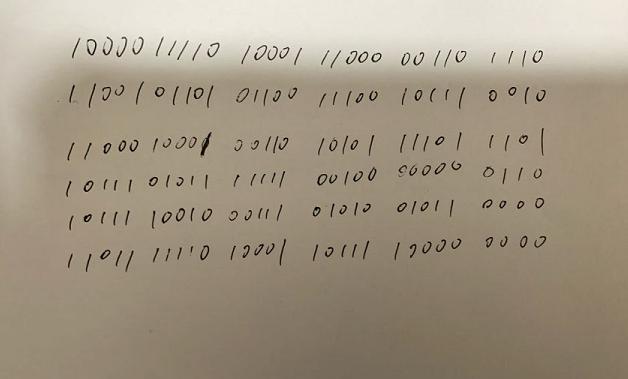 10000 11110 10001 11000 00110 1110
11001 01101 01100 11100 10111 0010
11000 10001 00110 10101 11101 1101
10111 01011 11111 00100 00000 0110
10111 10010 00111 01010 01011 0000
11011 11110 10001 10111 10000 0000